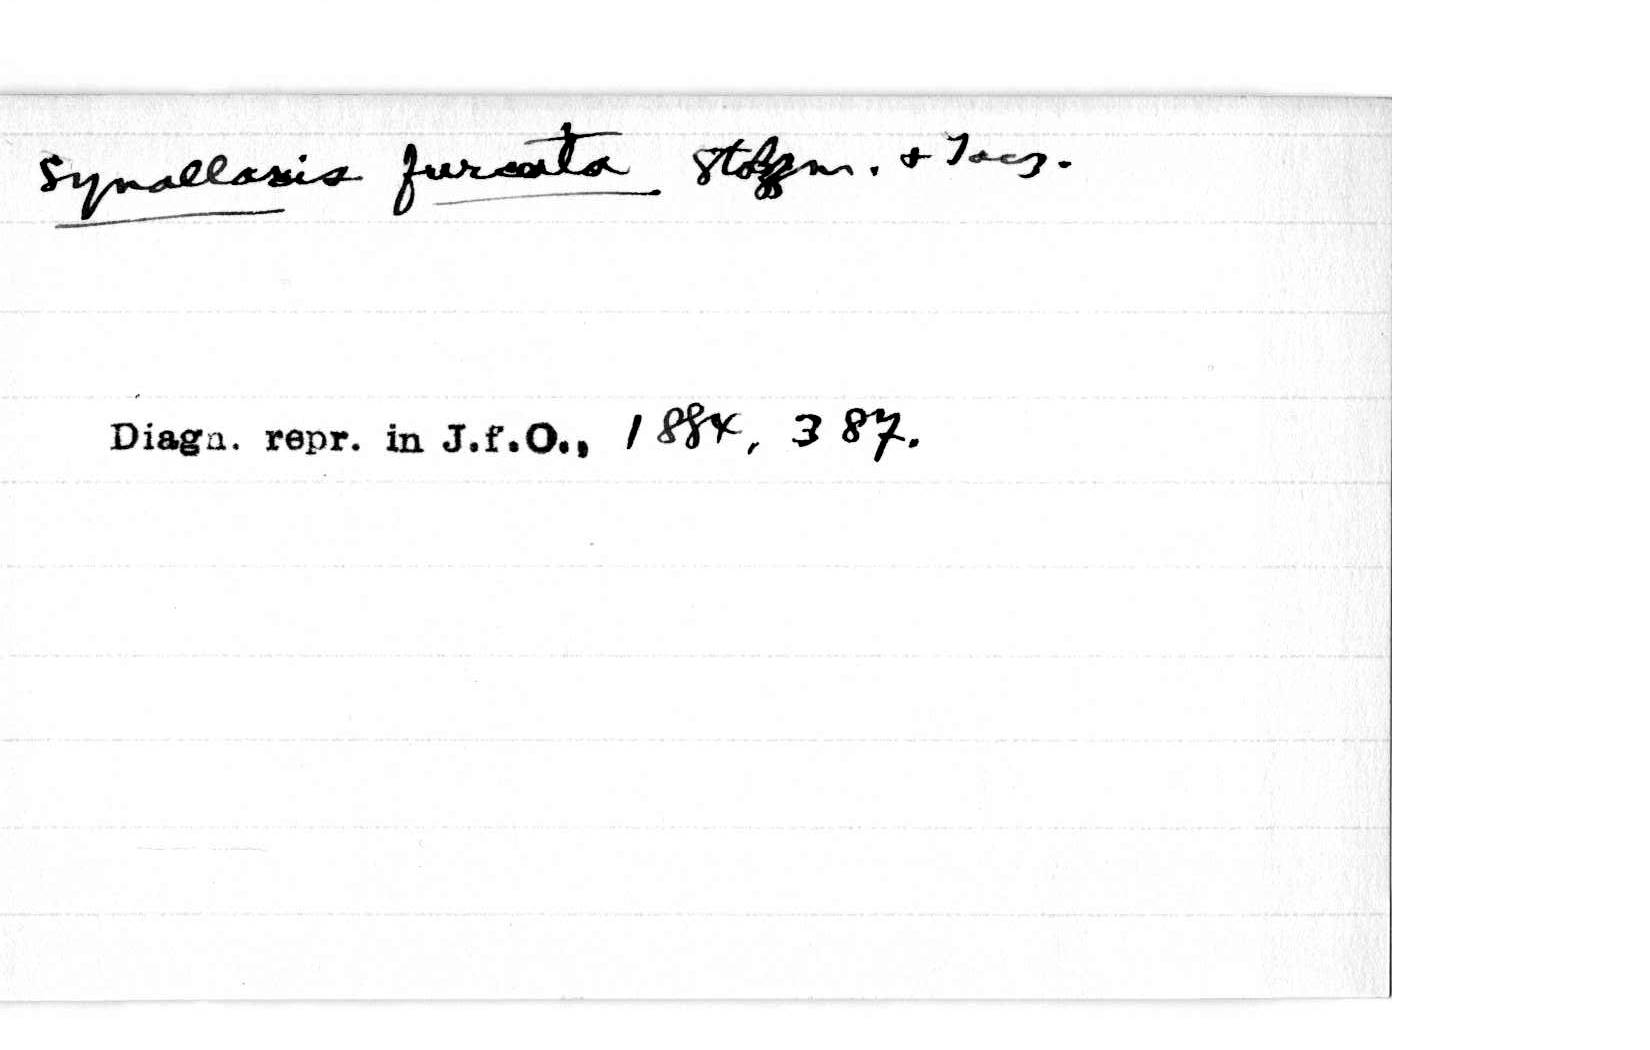 Synallaxis furcata Stolzm. + Tacz.
Diagn. repr. in J.f.O., 1884, 387.